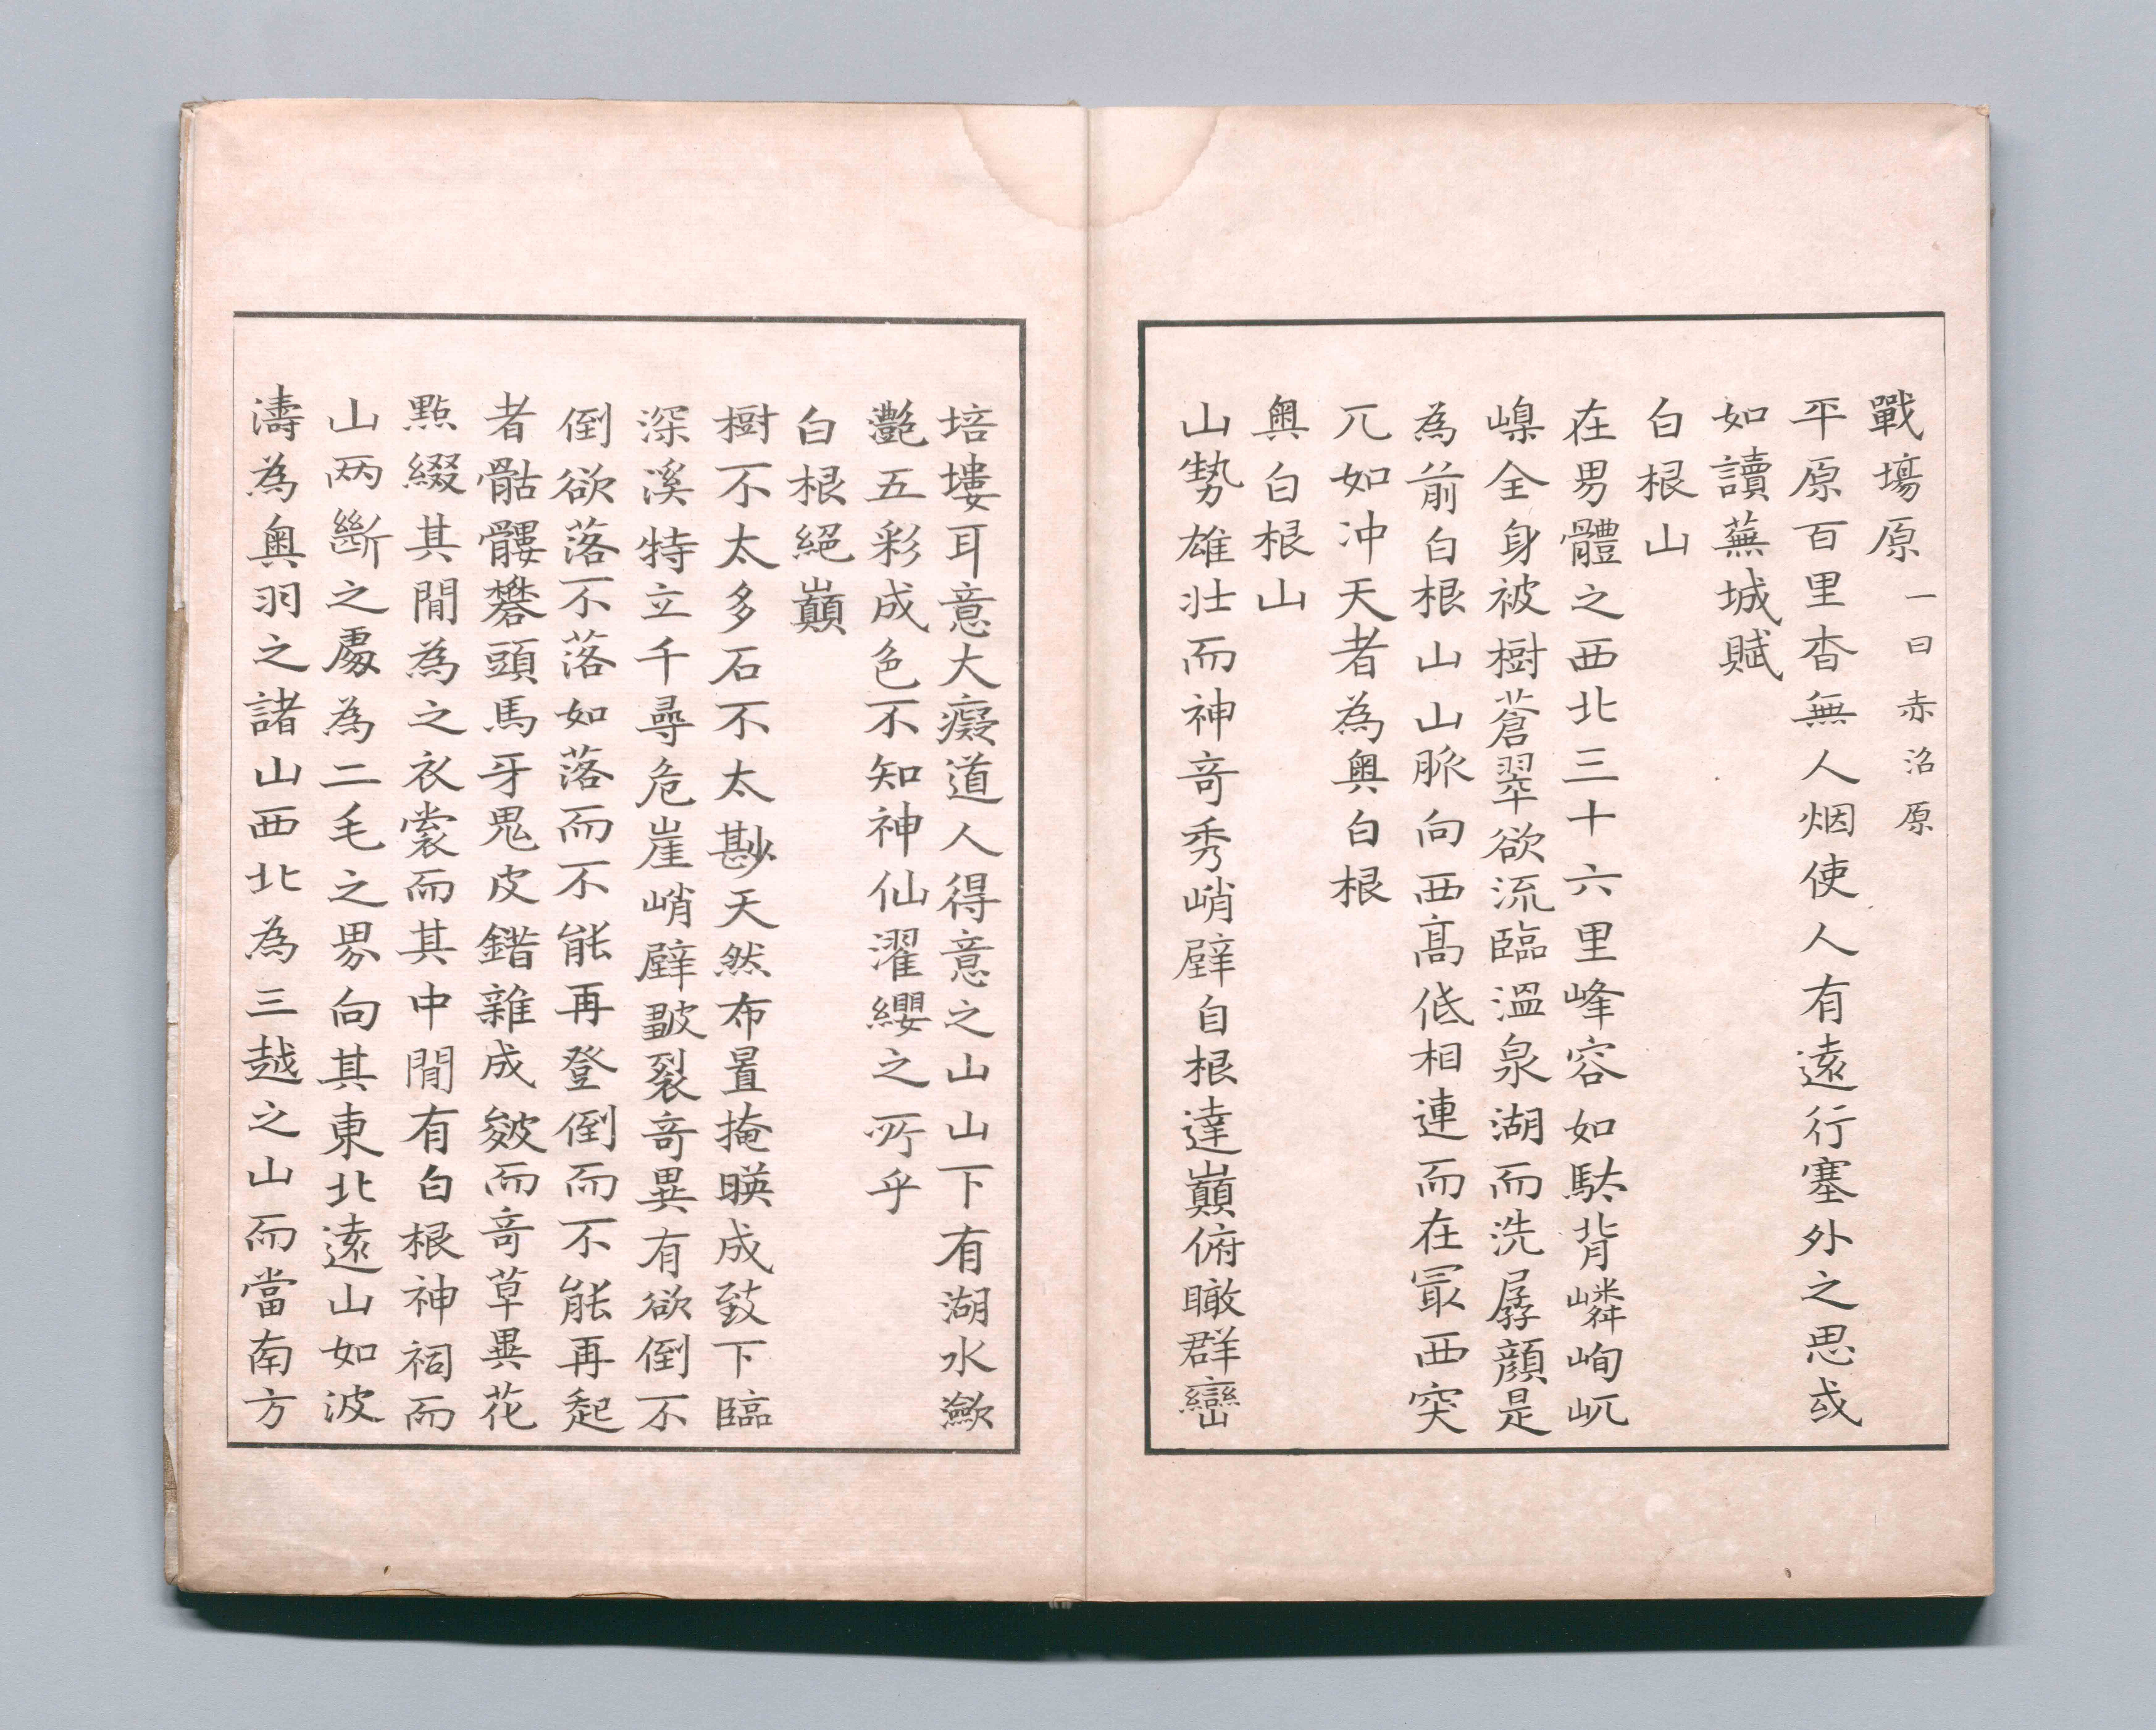 戰場原一曰赤沼原
平原百里杳無人烟使人有遠行塞外之思或
如讀蕪城賦
白根山
在男體之西北三十六里峰容如駄背嶙峋屼
嵲全身被樹蒼翠欲流臨溫泉湖而洗孱顏是
為前白根山山脈向西高低相連而在冣西突
兀如冲天者為奧白根
奧白根山
山勢雄壯而神竒秀峭壁自根達巔俯瞰群巒
培塿耳意大癡道人得意之山山下有湖水瀲
灔五彩成色不知神仙濯纓之所乎
白根絕巔
樹不太多石不太尠天然布置掩暎成致下臨
深溪特立千尋危崖峭壁皸裂竒異有欲倒不
倒欲落不落如落而不能再登倒而不能再起
者骷髏礬頭馬牙鬼皮錯雜成皴而竒草異花
點綴其間為之衣裳而其中間有白根神祠而
山兩斷之處為二毛之界向其東北遠山如波
濤為奧羽之諸山西北為三越之山而當南方